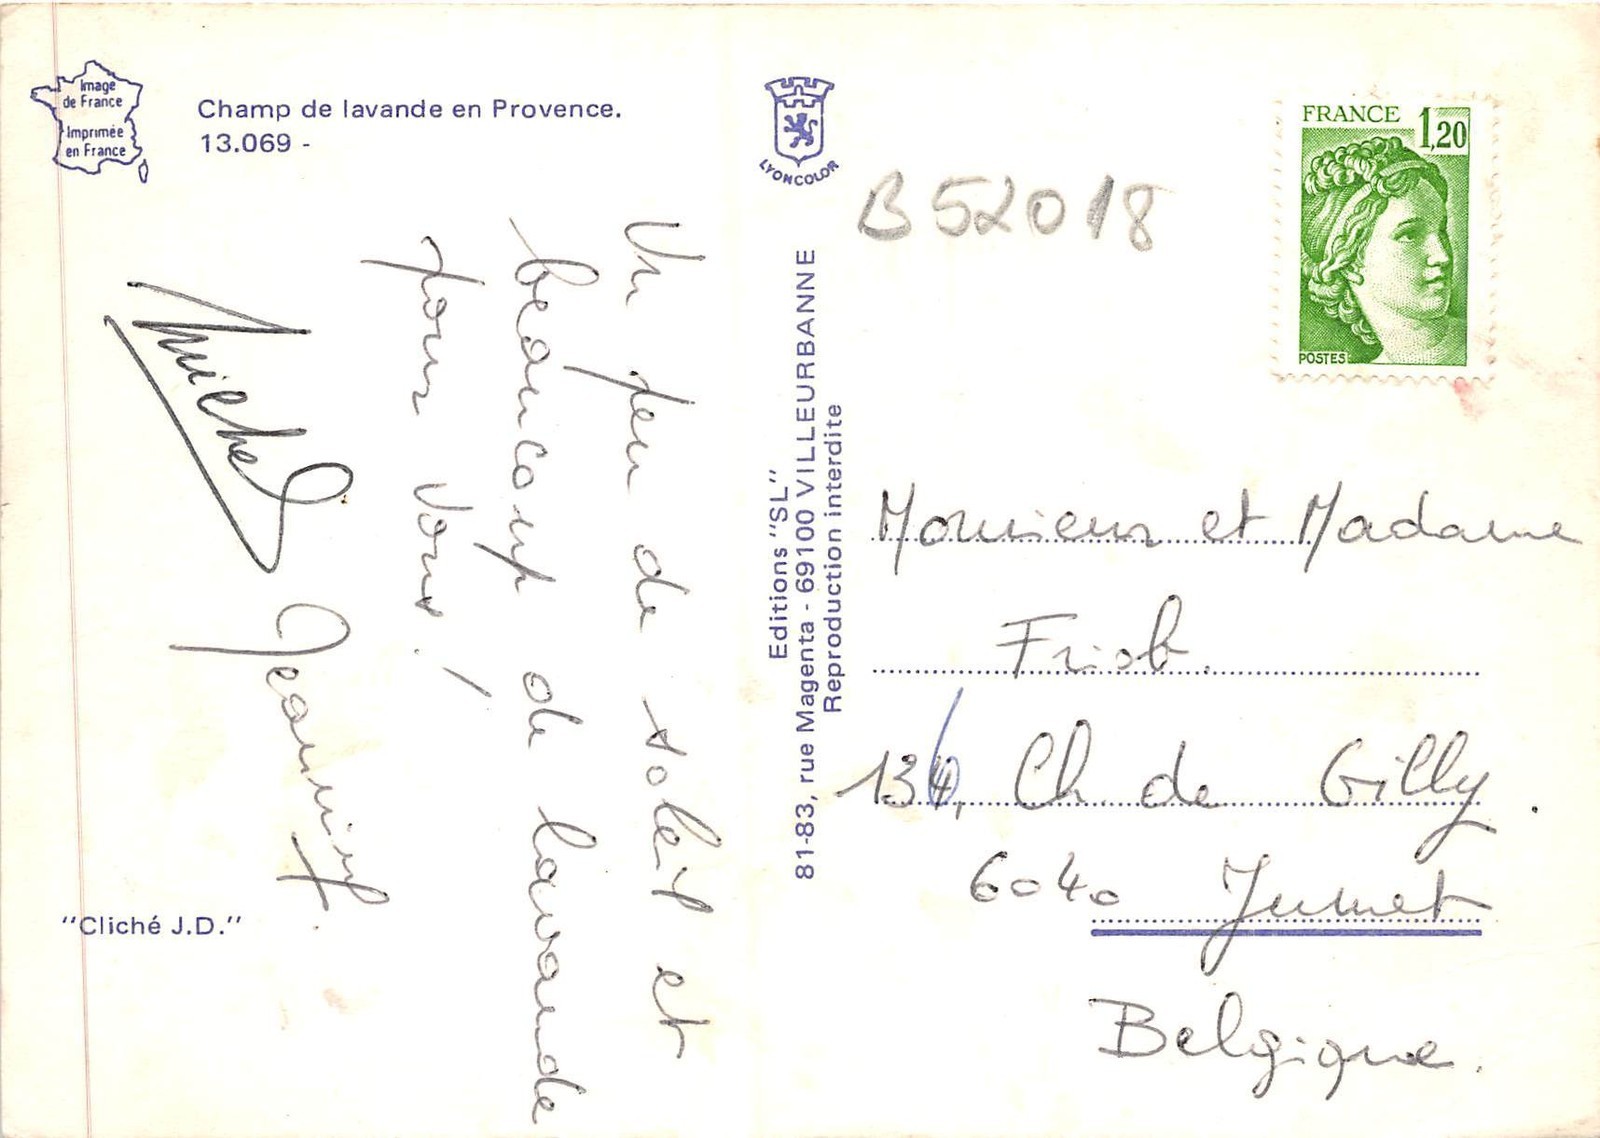 Image
de France
Imprimée
en France
Champ de lavande en Provence.
13.069 -
Un peu de soleil et
beaucoup de lavande
pour vous !
Michel
"Cliché J.D."
LYONCOLOR
Editions "SL"
81-83, rue Magenta - 69100 VILLEURBANNE
Reproduction interdite
B52018
FRANCE 1,20
POSTES
Monsieur et Madame
Friob.
Ch. de Gilly.
6040 Jumet
Belgique.